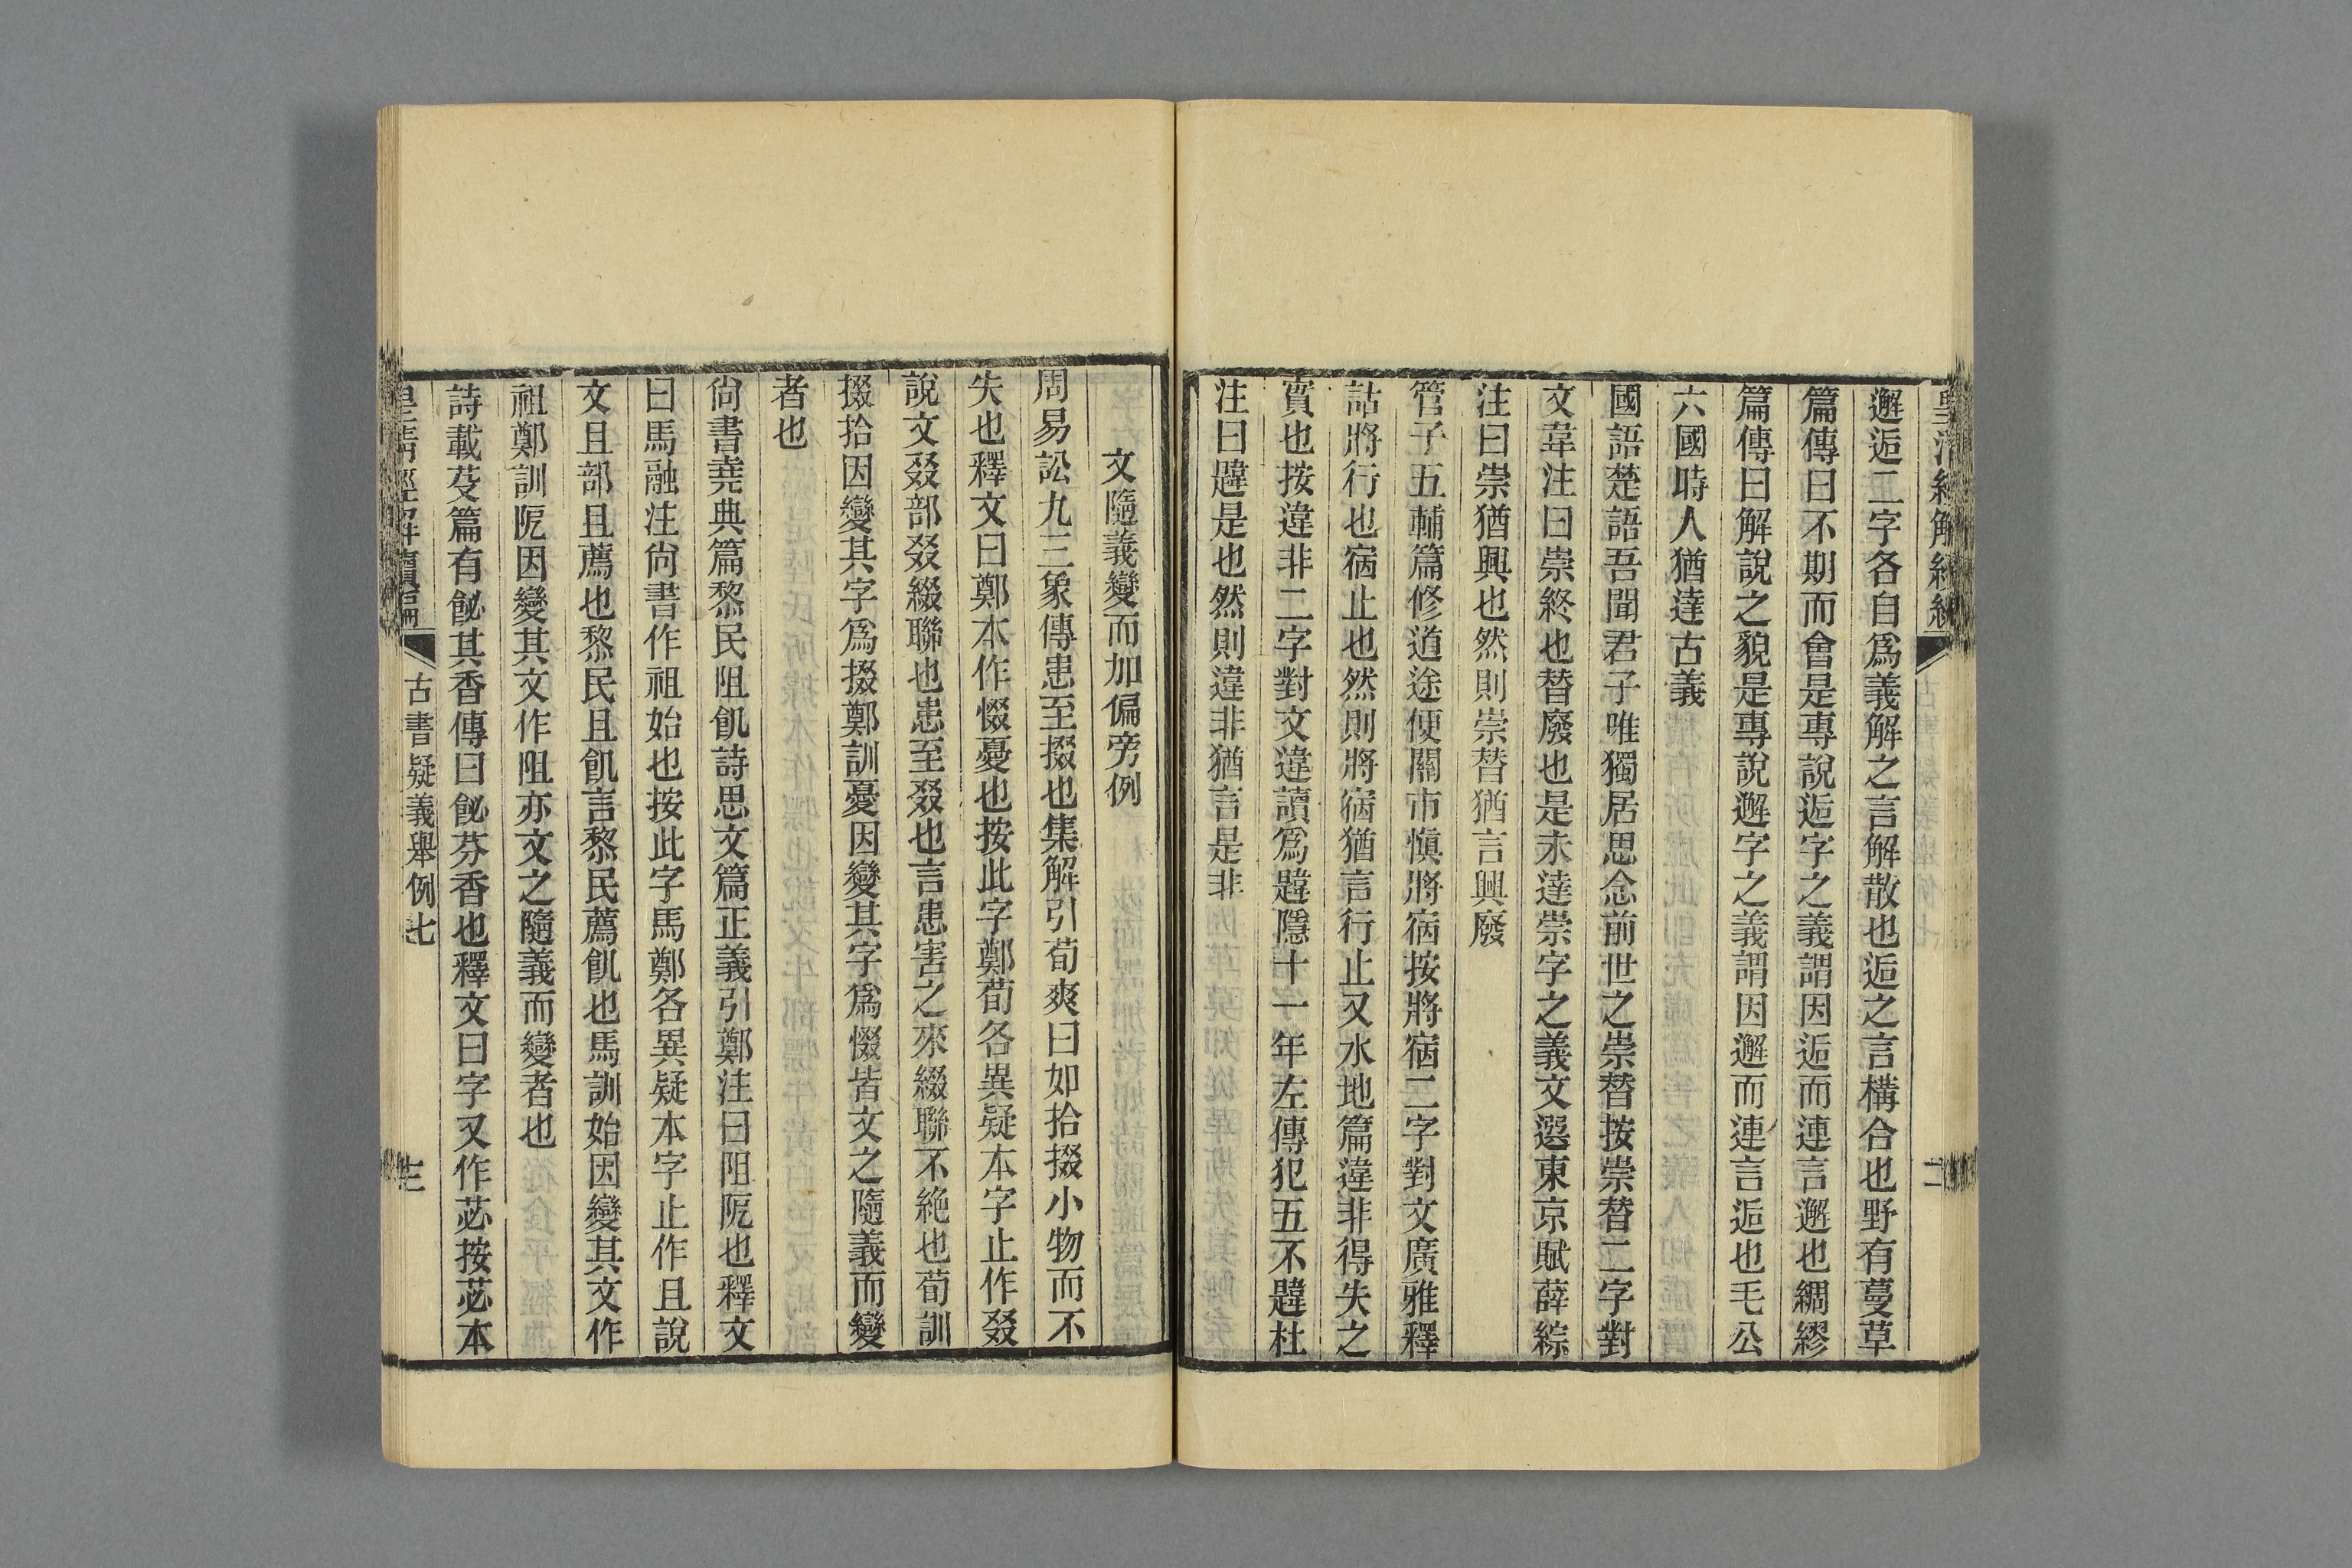 邂逅二字各自爲義解之言解散也逅之言構合也野有蔓草
篇傳曰不期而會是專說逅字之義謂因逅而連言邂也綢繆
篇傳曰解說之貌是專說邂字之義謂因邂而連言逅也毛公
六國時人猶達古義
國語楚語吾聞君子唯獨居思念前世之崇替按崇替二字對
文韋注曰崇終也替廢也是未達崇字之義文選東京賦薛綜
注曰崇猶興也然則崇替猶言興廢
管子五輔篇修道途便關市愼將宿按將宿二字對文廣雅釋
詁將行也宿止也然則將宿猶言行止又水地篇違非得失之
質也按違非二字對文違讀爲韙隱十一年左傳犯五不韙杜
注曰韙是也然則違非猶言是非
文隨義變而加偏旁例
周易訟九二象傳患至掇也集解引荀爽曰如拾掇小物而不
失也釋文曰鄭本作惙憂也按此字鄭荀各異疑本字止作叕
說文叕部叕綴聯也患至叕也言患害之來綴聯不絶也荀訓
掇拾因變其字爲掇鄭訓憂因變其字爲惙皆文之隨義而變
者也
尙書堯典篇黎民阻飢詩思文篇正義引鄭注曰阻阨也釋文
曰馬融注尙書作祖始也按此字馬鄭各異疑本字止作且說
文且部且薦也黎民且飢言黎民薦飢也馬訓始因變其文作
祖鄭訓阨因變其文作阻亦文之隨義而變者也
詩載芟篇有飶其香傳曰飶芬香也釋文曰字又作苾按苾本
皇淸經解續編
古書疑義舉例七